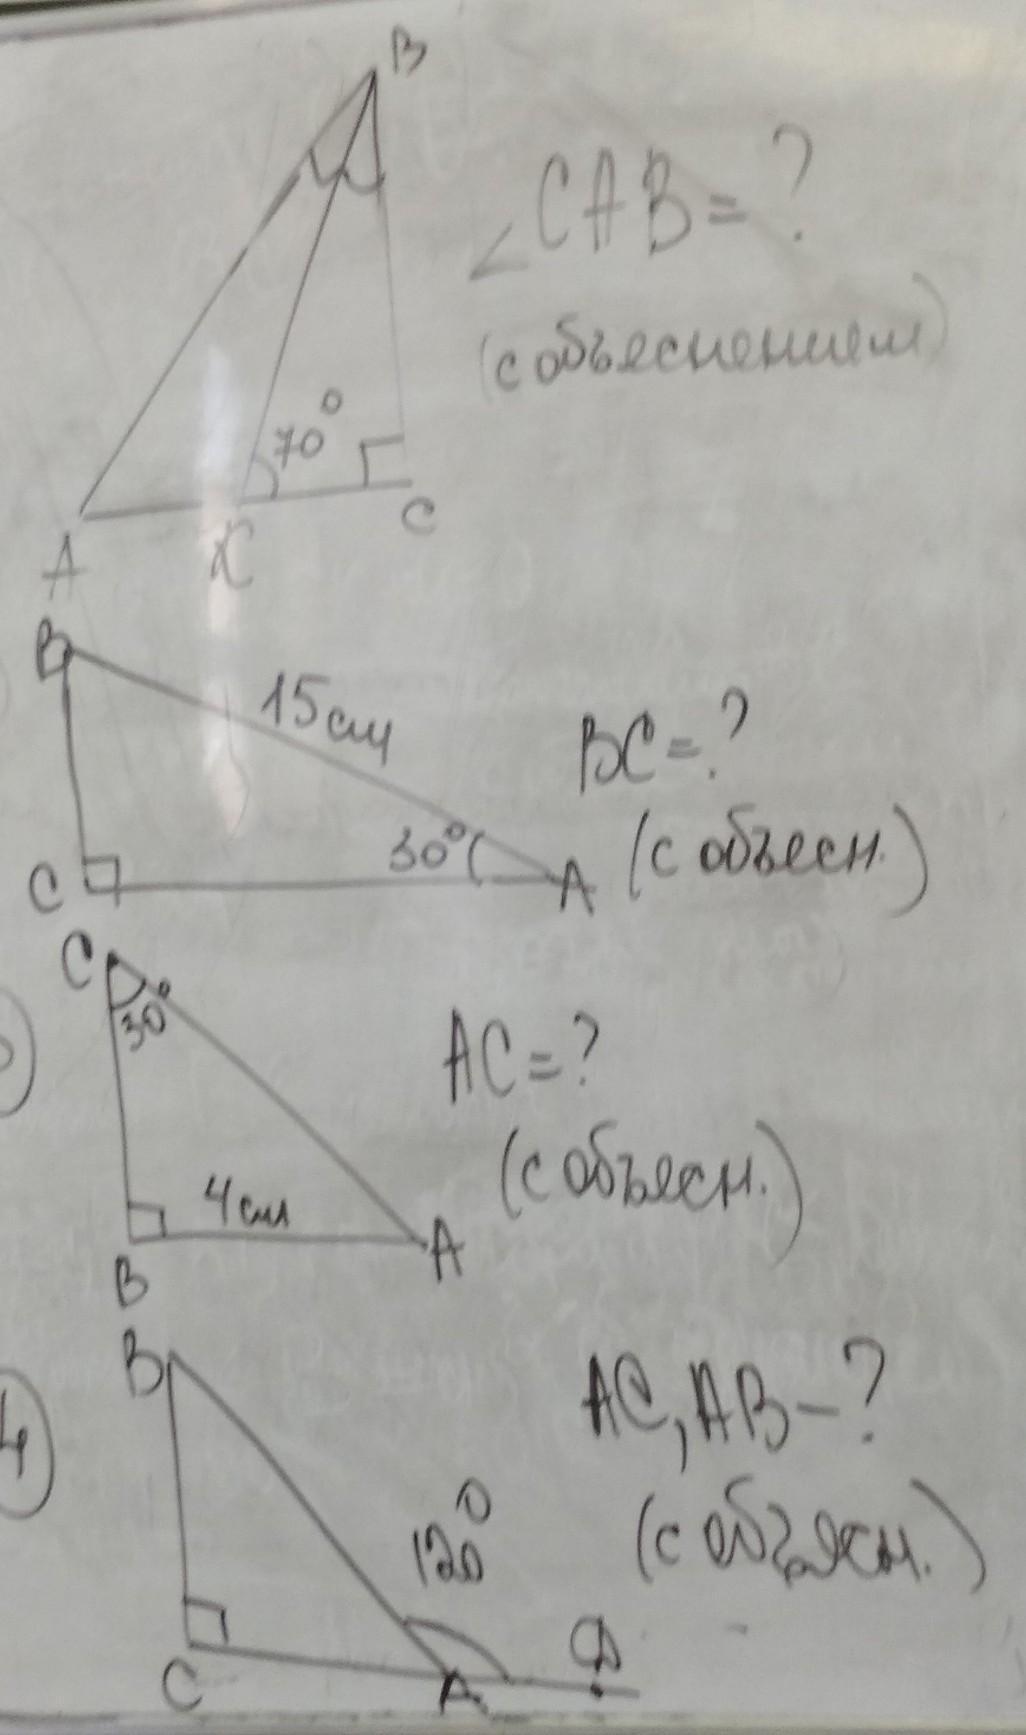 B
∠CAB=?
(с объяснением)
70°
A K C
B
15см
BC=?
30°
(с объясн.)
C A
C
30°
AC=?
(с объясн.)
4см
B A
B
4
AC, AB-?
120°
(с объясн.)
D
C A